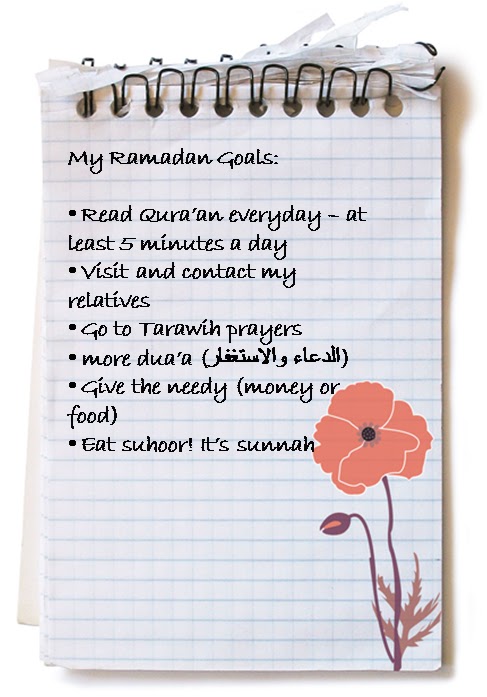 My Ramadan Goals:
• Read Qura'an everyday – at
least 5 minutes a day
• Visit and contact my
relatives
• Go to Tarawih prayers
• more dua'a (الدعاء والاستغفار)
• Give the needy (money or
food)
• Eat suhoor! It's sunnah